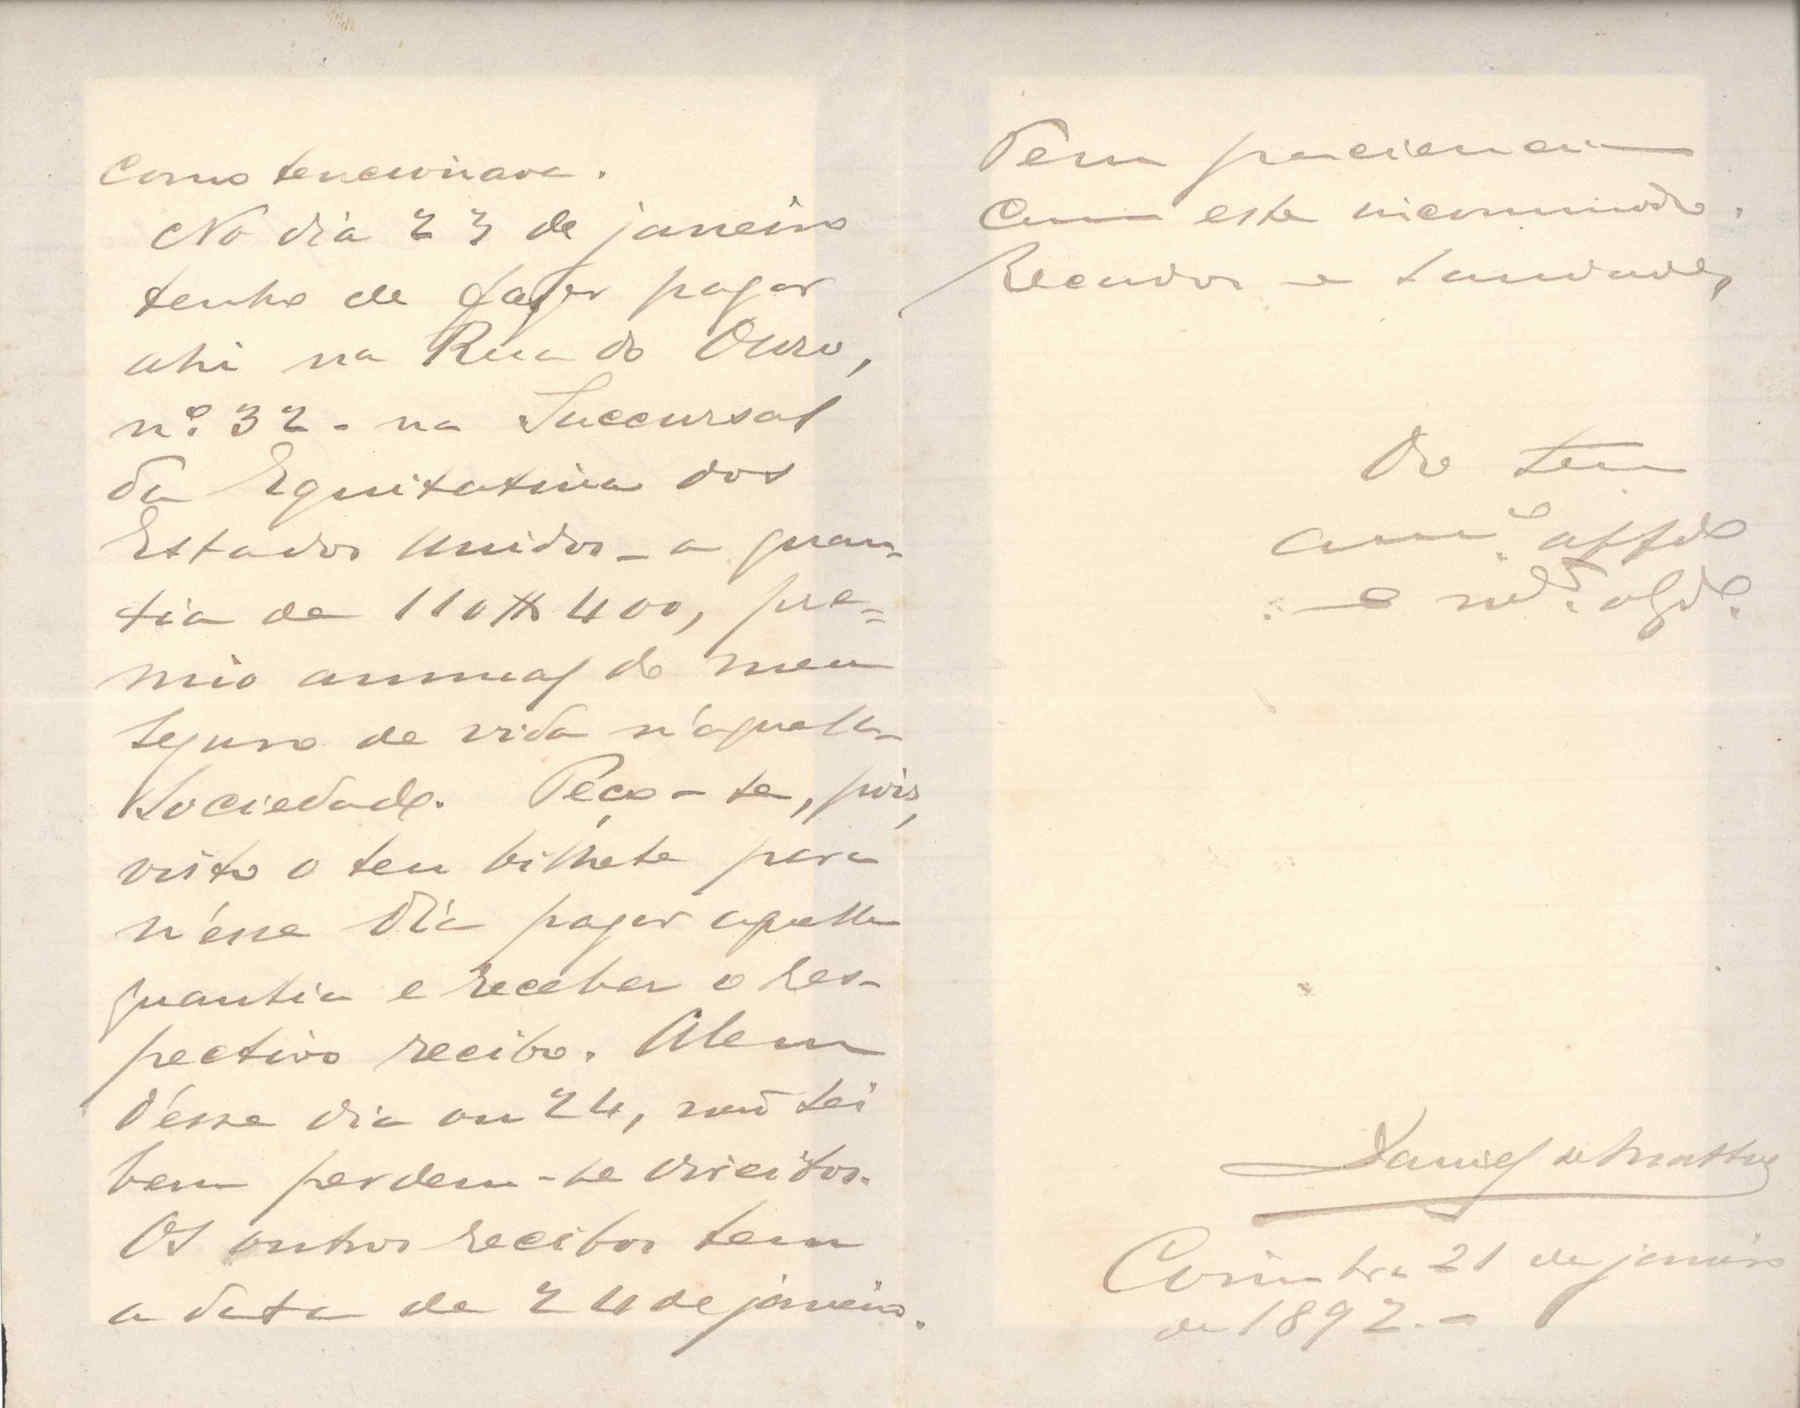 como tencionava.
No dia 23 de janeiro
tenho de fazer pagar
ahi na Rua do Ouro,
nº. 32 - na Succursal
da Equitativa dos
Estados Unidos - a quan-
tia de 110$400, pre=
mio annual do meu
seguro de vida n'aquella
Sociedade. Peço-te, pois,
visto o teu bilhete para
n'ésse dia pagar aquella
quantia e receber o res-
pectivo recibo. Alem
d'ésse dia ou 24, não sei
bem perdem-se direitos.
Os outros recibos tem
a data de 24 de janeiro.
Tem paciencia
com este incommodo.
Recados e saudades,
Do teu
amº. affdo
e obgdo.
Daniel de Mattos
Coimbra 21 de janeiro
de 1892.-